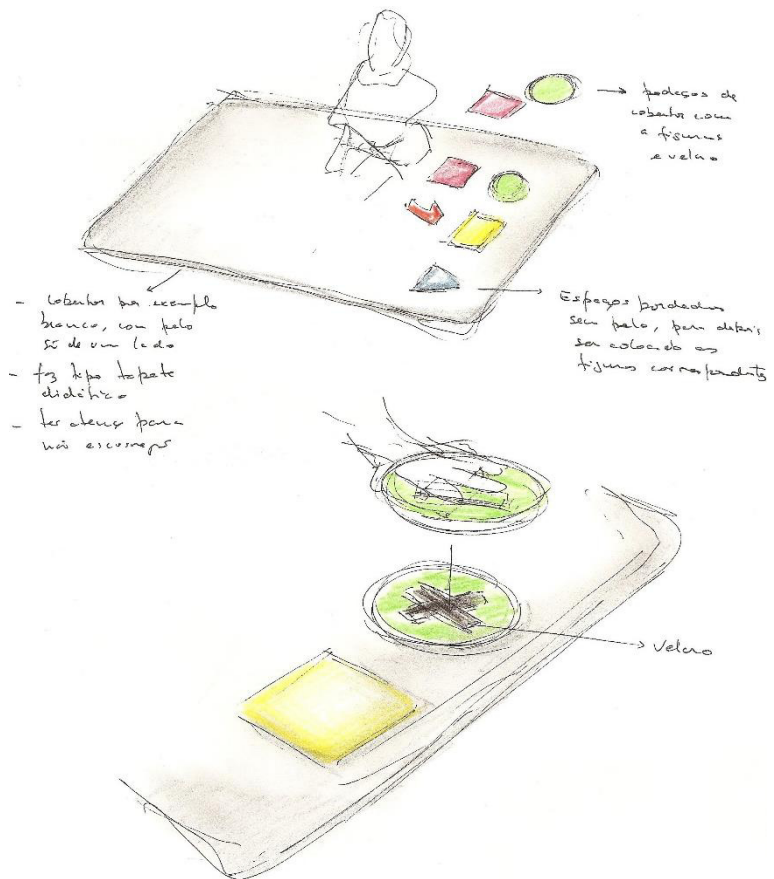 pedaços de
cobertor com
a figuras
e velcro
- cobertor por exemplo
branco, com pelo
só de um lado
- faz tipo tapete
didático
- ter atenç para
não escorregar
Espaços bordados
sem pelo, para depois
ser colocado as
figuras correspondentes
Velcro